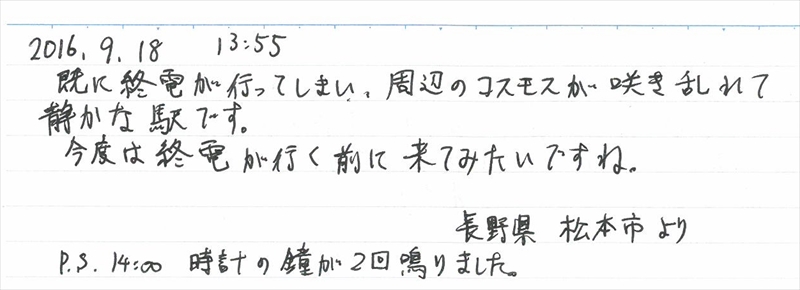 2016. 9. 18 13:55
既に終電が行ってしまい、周辺のコスモスが咲き乱れて
静かな駅です。
今度は終電が行く前に来てみたいですね。
長野県 松本市より
P.S. 14:00 時計の鐘が2回鳴りました。